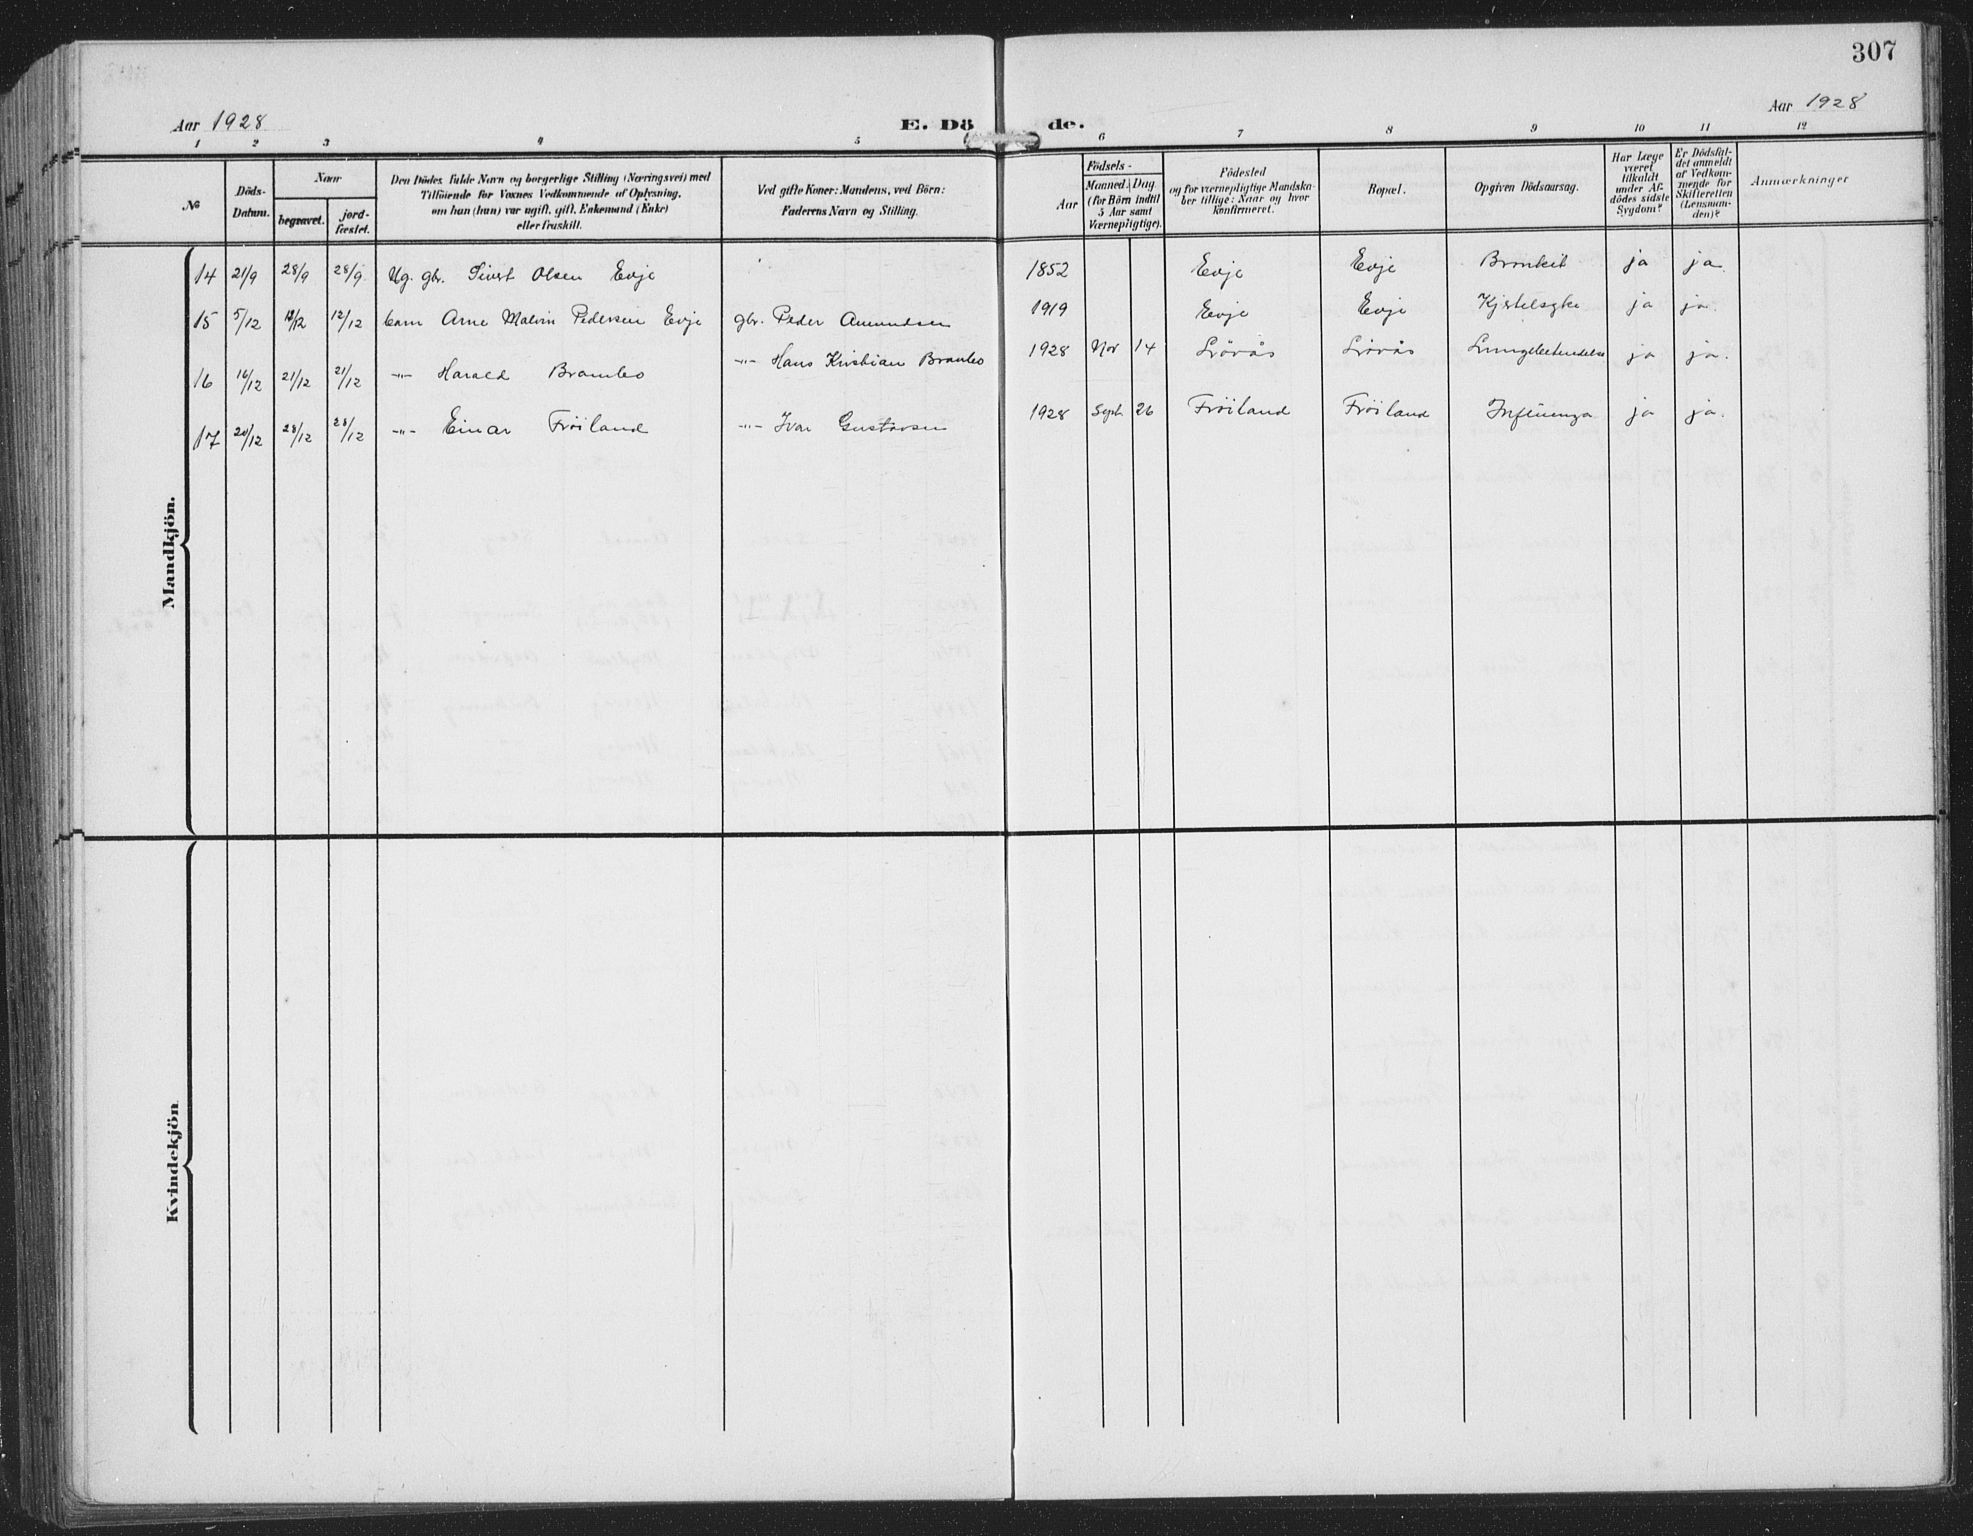 307
Aar 1928
E. Döde.
Aar 1928
1 2 3 4 5 6 7 8 9 10 11 12
№
Döds-Datum.
Naar
begravet.
jord-fæstet.
Den Dödes fulde Navn og borgerlige Stilling (Næringsvei) med
Tilföiende for Voxnes Vedkommende af Oplysning,
om han (hun) var ugift, gift, Enkemand (Enke)
eller fraskilt.
Ved gifte Koner: Mandens, ved Börn:
Faderens Navn og Stilling.
Aar
Födsels-
Maaned. Dag
(for Börn indtil
5 Aar samt
Værnepligtige).
Födested
og for værnepligtige Mandska-
ber tillige: Naar og hvor
Konfirmeret.
Bopæl.
Opgiven Dödsaarsag.
Har Læge
været
tilkaldt
under Af-
dödes sidste
Sygdom?
Er Dödsfal-
det anmeldt
af Vedkom-
mende for
Skifteretten
(Lensman-
den)?
Anmærkninger
Mandkjön.
14 21/9 28/9 28/9 Ug. gbr. Sivert Olsen Evje 1852 Evje Evje Bronkit ja ja.
15 5/12 12/12 12/12 barn Arne Malvin Pedersen Evje gbr. Peder Amundsen 1919 Evje Evje Kjertelsyke ja ja.
16 16/12 21/12 21/12 -"- Harald Brambo -"- Hans Kristian Brambo 1928 Nov 14 Lungebetendelse ja ja.
17 20/12 28/12 28/12 -"- Einar Fröiland -"- Ivar Gustavsen 1928 Sept. 26 Fröiland Fröiland Influenza ja ja.
Kvindekjön